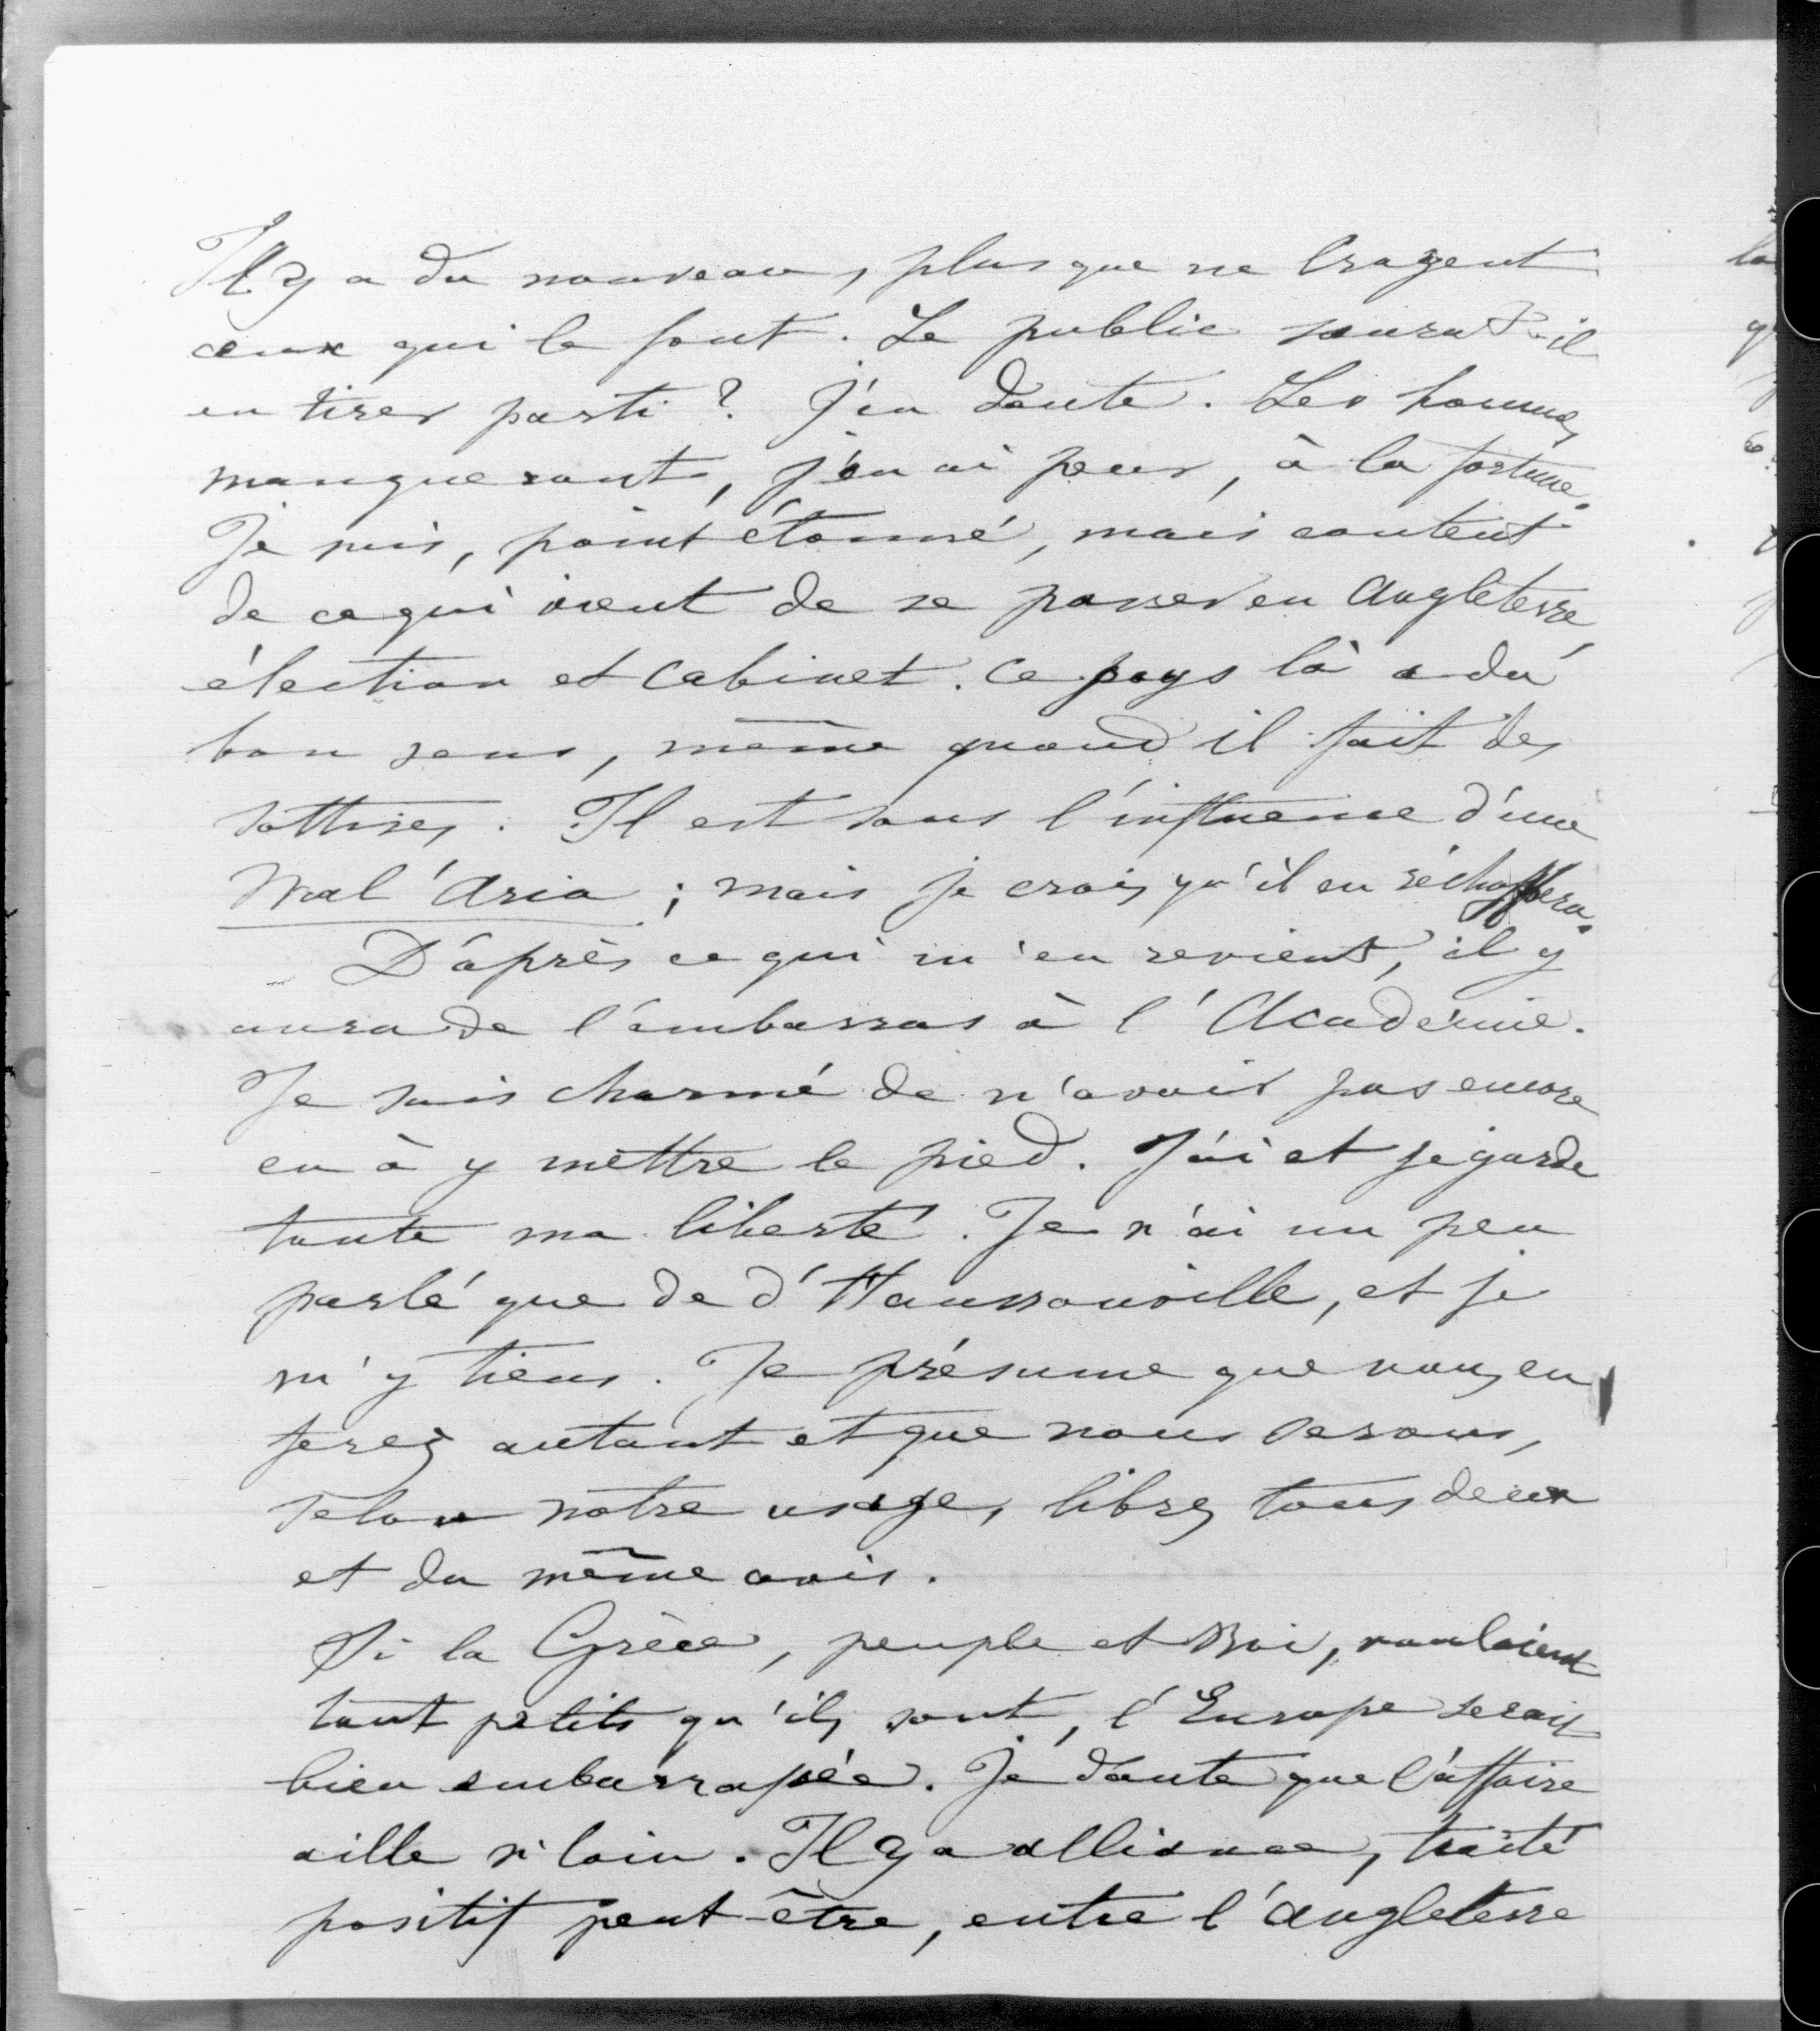 Il y a du nouveau, plus que ne croyent
ceux qui le font. Le public saura-t-il
en tirer parti ? J'en doute. Les hommes
manqueront, j'en ai peur, à la fortune.
Je suis, point étonné, mais content
de ce qui vient de se passer en Angleterre
élection et cabinet. Ce pays là a du
bon sens, même quand il fait des
sottises. Il est sous l'influence d'une
Mal'Aria ; mais je crois qu'il en réchappera.
D'après ce qui m'en revient, il y
aura de l'embarras à l'Académie.
Je suis charmé de n'avoir pas encore
eu à y mettre le pied. J'ai et je garde
toute ma liberté. Je n'ai un peu
parlé que de d'Haussonville, et je
m'y tiens. Je présume que vous en
ferez autant et que nous serons,
selon notre usage, libres tous deux
et du même avis.
Si la Grèce, peuple et Roi, vouloient
tout petits qu'ils sont, l'Europe serait
bien embarrassée. Je doute que l'affaire
aille si loin. Il y a alliance, traité
positif peut-être, entre l'Angleterre